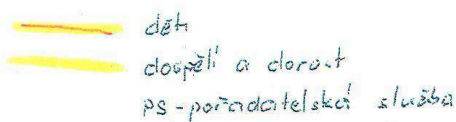 děti
dospělí a dorost
ps-pořadatelská služba